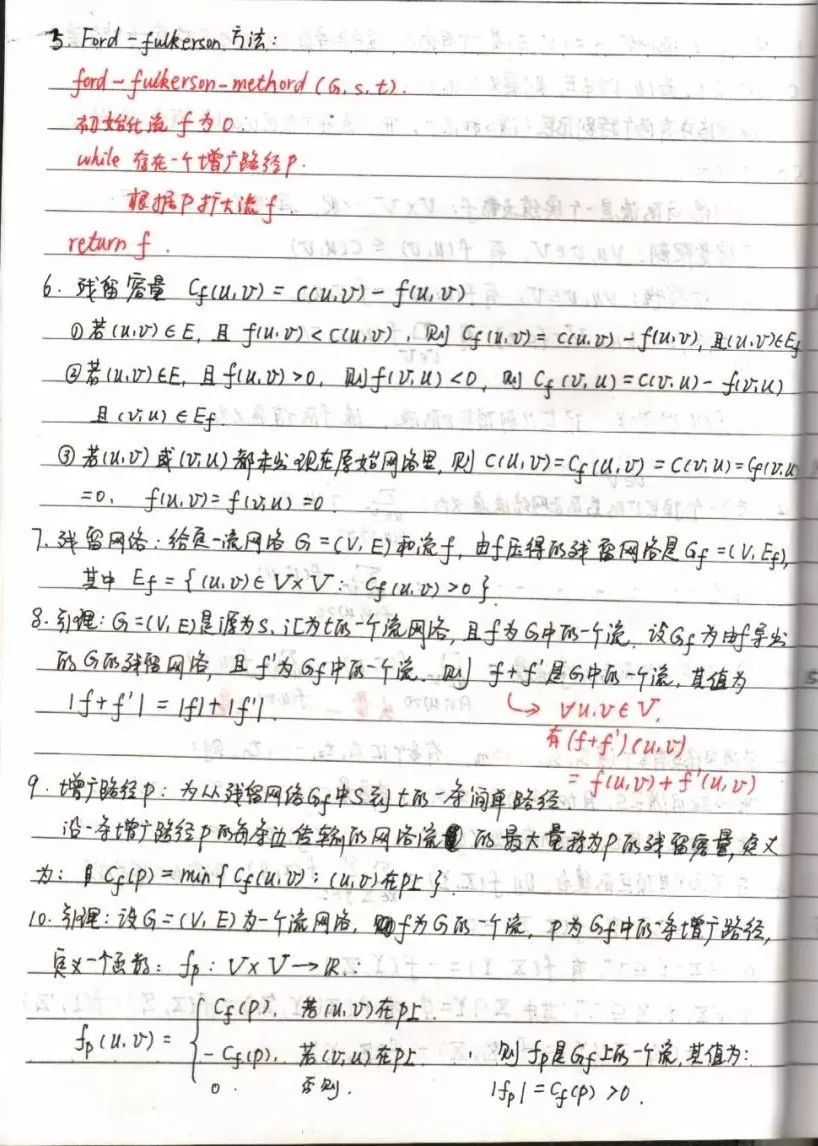 5. Ford-fulkerson 方法:
ford-fulkerson-methord (G, s, t).
初始化流 f 为 0
while 存在一个增广路径 p.
根据 p 扩大流 f
return f.
6. 残留容量 Cf(u,v) = c(u,v) - f(u,v)
①若(u,v)∈E, 且 f(u,v) < c(u,v), 则 Cf(u,v) = c(u,v) - f(u,v), 且(u,v)∈Ef
②若(u,v)∈E, 且 f(u,v)>0, 则 f(v,u)<0, 则 Cf(v,u) = c(v,u) - f(v,u)
且(v,u)∈Ef.
③若(u,v)或(v,u)都未出现在原始网络里, 则 c(u,v) = Cf(u,v) = c(v,u) = Cf(v,u)
=0. f(u,v) = f(v,u) = 0.
7. 残留网络: 给定一流网络 G=(V,E)和流f, 由f压得的残留网络是Gf=(V,Ef),
其中 Ef = {(u,v)∈V×V: Cf(u,v)>0}.
8. 引理: G=(V,E)是源为s, 汇为t的一个流网络, 且f为G中的一个流. 设Gf为由f导出
的G的残留网络, 且f'为Gf中的一个流. 则 f+f'是G中的一个流, 其值为
|f+f'| = |f|+|f'|.
↳ ∀u,v∈V,
有(f+f')(u,v)
= f(u,v)+f'(u,v)
9. 增广路径p: 为从残留网络Gf中S到t的一条简单路径
沿一条增广路径p的每条边传输的网络流的最大量称为p的残留容量, 定义
为: Cf(p) = min{Cf(u,v): (u,v)在p上}.
10. 引理: 设G=(V,E)为一个流网络, f为G的一个流, p为Gf中的一条增广路径,
定义一个函数: fp: V×V→R:
Cf(p), 若(u,v)在p上.
fp(u,v) = { -Cf(p), 若(v,u)在p上. , 则fp是Gf上的一个流, 其值为:
0. 否则. |fp| = Cf(p) > 0.